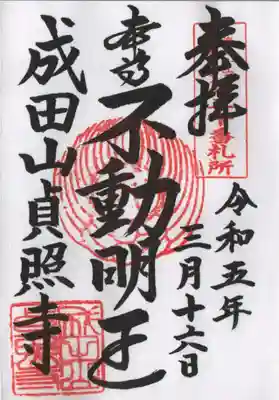 奉拝
令和五年
三月十六日
本尊
不動明王
成田山貞照寺